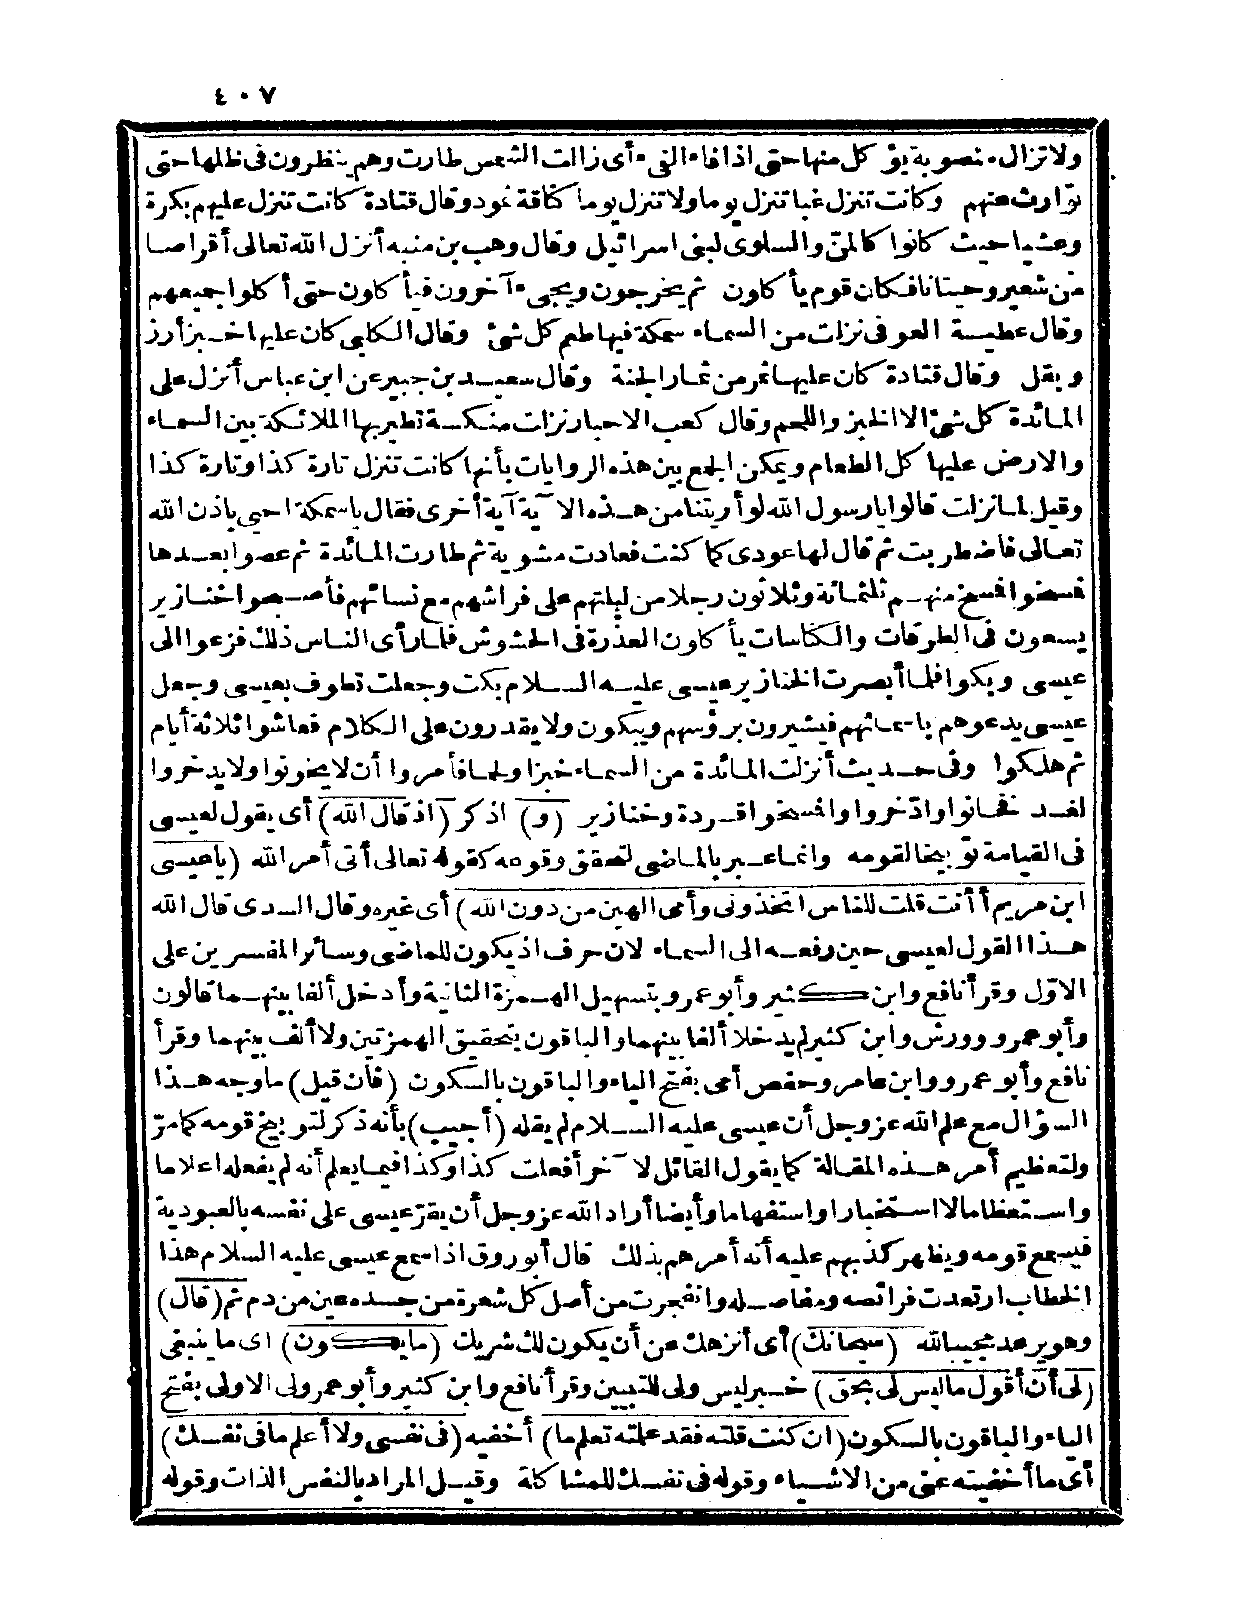 ٤٠٧
ولا تزال منصوبة يؤكل منها حتى اذا فاء الفىء أى زالت الشمس طارت وهم ينظرون فى ظلها حتى
توارت عنهم وكانت تنزل غبا تنزل يوما ولا تنزل يوما كناقة ثمود وقال قتادة كانت تنزل عليهم بكرة
وعشيا حيث كانوا كالمنّ والسلوى لبنى اسرائيل وقال وهب بن منبه أنزل الله تعالى أقراصا
من شعير وحيتانا فكان قوم يأكلون ثم يخرجون ويجىء آخرون فيأكلون حتى أكلوا جميعهم
وقال عطية العوفى نزلت من السماء سمكة فيها طعم كل شئ وقال الكلبى كان عليها خبز أرز
وبقل وقال قتادة كان عليها ثمر من ثمار الجنة وقال سعيد بن جبير عن ابن عباس أنزل على
المائدة كل شئ الا الخبز واللحم وقال كعب الاحبار نزلت منكسة تطير بها الملائكة بين السماء
والارض عليها كل الطعام ويمكن الجمع بين هذه الروايات بأنها كانت تنزل تارة كذا وتارة كذا
وقيل لما نزلت قالوا يا رسول الله لو أريتنا من هذه الآية آية أخرى فقال يا سمكة احيى باذن الله
تعالى فاضطربت ثم قال لها عودى كما كنت فعادت مشوية ثم طارت المائدة ثم عصوا بعدها
فمسخوا فمسخ منهم ثلثمائة وثلاثون رجلا من ليلتهم على فراشهم مع نسائهم فأصبحوا خنازير
يسعون فى الطرقات والكناسات يأكلون العذرة فى الحشوش فلما رأى الناس ذلك فزعوا الى
عيسى وبكوا فلما أبصرت الخنازير عيسى عليه السلام بكت وجعلت تطوف بعيسى وجعل
عيسى يدعوهم باسمائهم فيشيرون برؤسهم ويبكون ولا يقدرون على الكلام فعاشوا ثلاثة أيام
ثم هلكوا وفى حديث أنزلت المائدة من السماء خبزا ولحما فأمروا أن لا يخونوا ولا يدخروا
لغد فخانوا وادّخروا فمسخوا قردة وخنازير (و) اذكر (اذ قال الله) أى يقول لعيسى
فى القيامة توبيخا لقومه وانما عبر بالماضى لتحقق وقوعه كقوله تعالى أتى أمر الله (يا عيسى
ابن مريم أأنت قلت للناس اتخذونى وأمى الهين من دون الله) أى غيره وقال السدى قال الله
هذا القول لعيسى حين رفعه الى السماء لان حرف اذ يكون للماضى وسائر المفسرين على
الاوّل وقرأ نافع وابن كثير وأبو عمرو بتسهيل الهمزة الثانية وأدخل ألفا بينهما قالون
وأبو عمرو وورش وابن كثير لم يدخلا ألفا بينهما والباقون بتحقيق الهمزتين ولا ألف بينهما وقرأ
نافع وأبو عمرو وابن عامر وحفص أمى بفتح الياء والباقون بالسكون (فان قيل) ما وجه هذا
السؤال مع علم الله عز وجل أن عيسى عليه السلام لم يقله (أجيب) بأنه ذكر لتوبيخ قومه كما مرّ
ولتعظيم أمر هذه المقالة كما يقول القائل لآخر أفعلت كذا وكذا فيما يعلم أنه لم يفعله اعلاما
واستعظاما لا استخبارا واستفهاما وأيضا أراد الله عز وجل أن يقرّ عيسى على نفسه بالعبودية
فيسمع قومه ويظهر كذبهم عليه أنه أمرهم بذلك قال أبو روق اذا سمع عيسى عليه السلام هذا
الخطاب ارتعدت فرائصه ومفاصله وانفجرت من أصل كل شعرة من جسده عين من دم ثم (قال)
وهو يرعد مجيبا لله (سبحانك) أى أنزهك عن أن يكون لك شريك (ما يكون) اى ما ينبغى
(لى أن أقول ما ليس لى بحق) خبر ليس ولى للتبيين وقرأ نافع وابن كثير وأبو عمرو لى الاولى بفتح
الياء والباقون بالسكون (ان كنت قلته فقد علمته تعلم ما) أخفيه (فى نفسى ولا أعلم ما فى نفسك)
أى ما أخفيته عنى من الاشياء وقوله فى نفسك للمشاكلة وقيل المراد بالنفس الذات وقوله